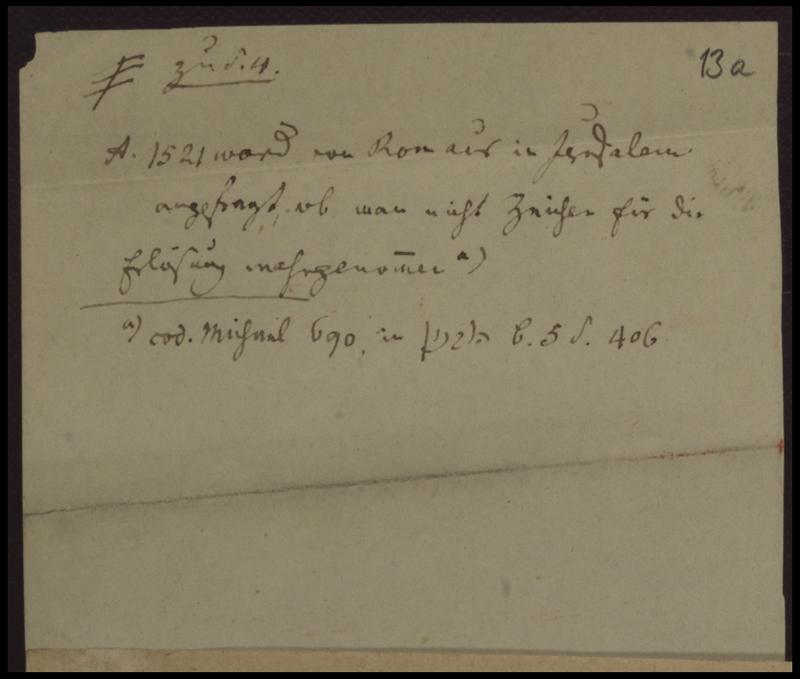 13a
zu S. 4.
A. 1521 ward von Rom aus in Jerusalem
angefragt, ob man nicht Zeichen für die
Erlösung wahrgenom̅en a)
a) cod. Michael 690, in b. 5 S. 406